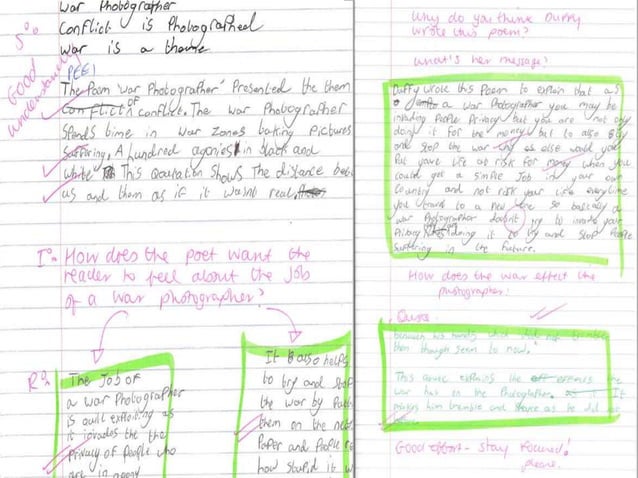 War Photographer
Conflict is Photographed
War is a theme
S:
Good understanding
PEE1
The Poem 'War Photographer' Presented the them
Conflict of conflict. The War Photographer
Spends time in War zones taking Pictures
Suffering. A hundred agonies in black and
white This quatation shows The distance bet
us and them as if it wasnt real.
I: How does the poet want the
reader to feel about the job
of a war photographer?
R:
The Job of
a war Photographer
is quit exploiting as
it invades the the
Privacy of People who
are in agony
It also helps
to try and stop
the war by Putt
them on the
Paper and People re
how stupid it w
Why do you think Duffy
wrote this poem?
What's her message?
Duffy wrote this Poem to explain that as
a war Photographer you may be
invading People Privacy but you are not only
doing it for the money but to also try
and stop the war why as else would you
Put your life at risk for money when you
could get a simple Job in your own
Country and not risk your life everytime
you travel to a new one so basicaly a
war Photographer doesn't try to invade your
Privacy doing it to try and stop People
suffering in the future.
How does the war effect the
photographer?
Quote
beneath his hands which did not tremble
then though seem to now.'
This quote explains the effect
war has on the Photographer. It
makes him tremble and as he did not
before.
Good effort - stay focused!
please.